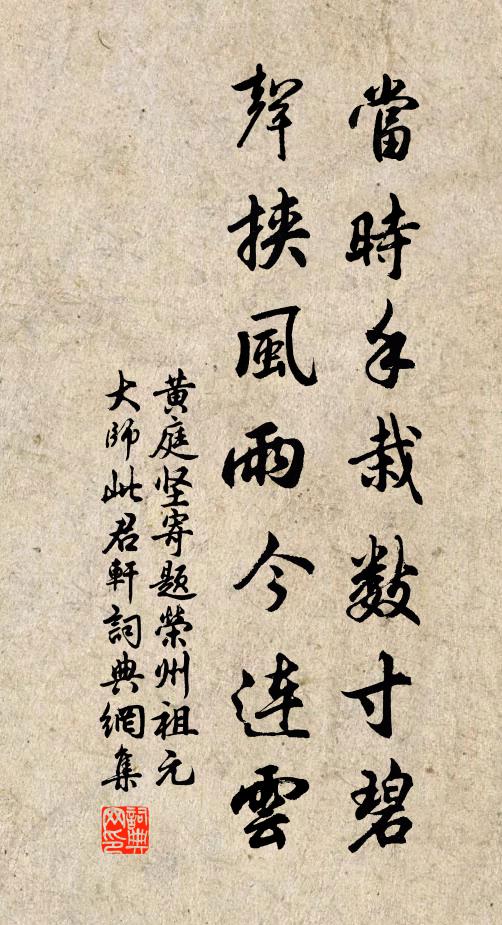 當時手栽數寸碧
聲挾風雨今連雲
黄庭坚寄題榮州祖元
大師此君軒詞典網集
詞典
网印